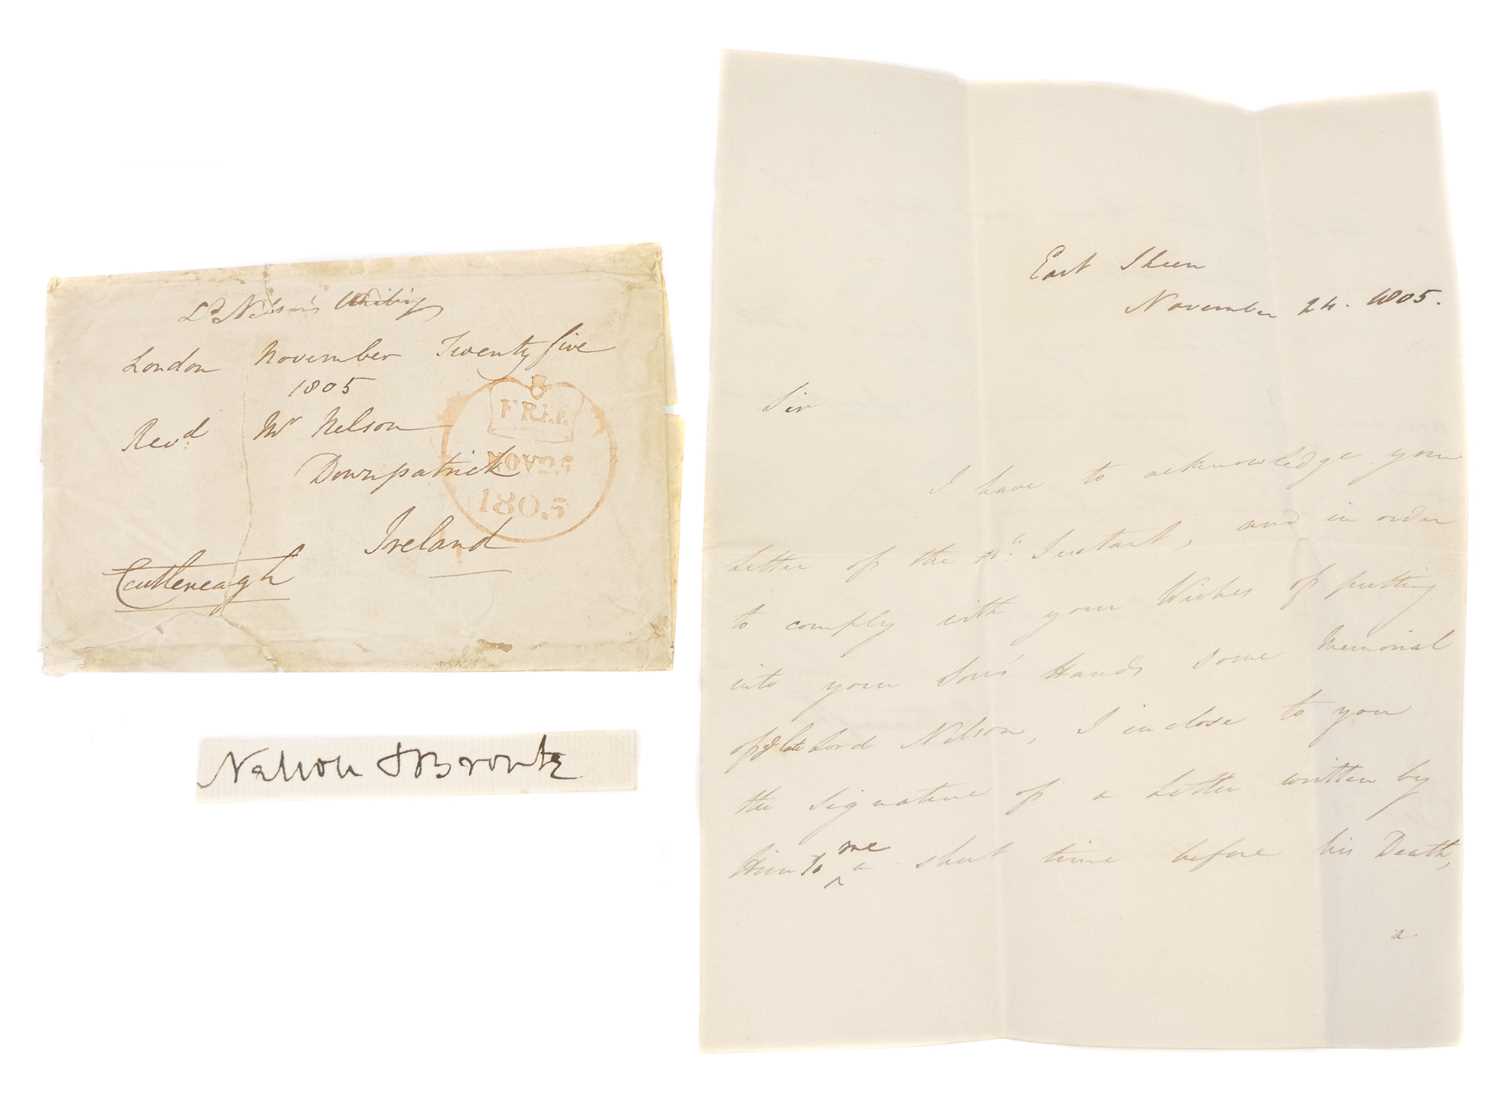 Ld Nelson's Writing
London November Twenty five
1805
Revd Mr Nelson
Downpatrick
Ireland
Castlereagh
FREE
NOV 25
1805
Nelson & Bronte
East Sheen
November 24. 1805.
Sir
I have to acknowledge your
letter of the Instant, and in order
to comply with your Wishes of putting
into your Son's Hands some Memorial
of ye late Lord Nelson, I inclose to you
the Signature of a Letter written by
Him to me a short time before his Death,
a